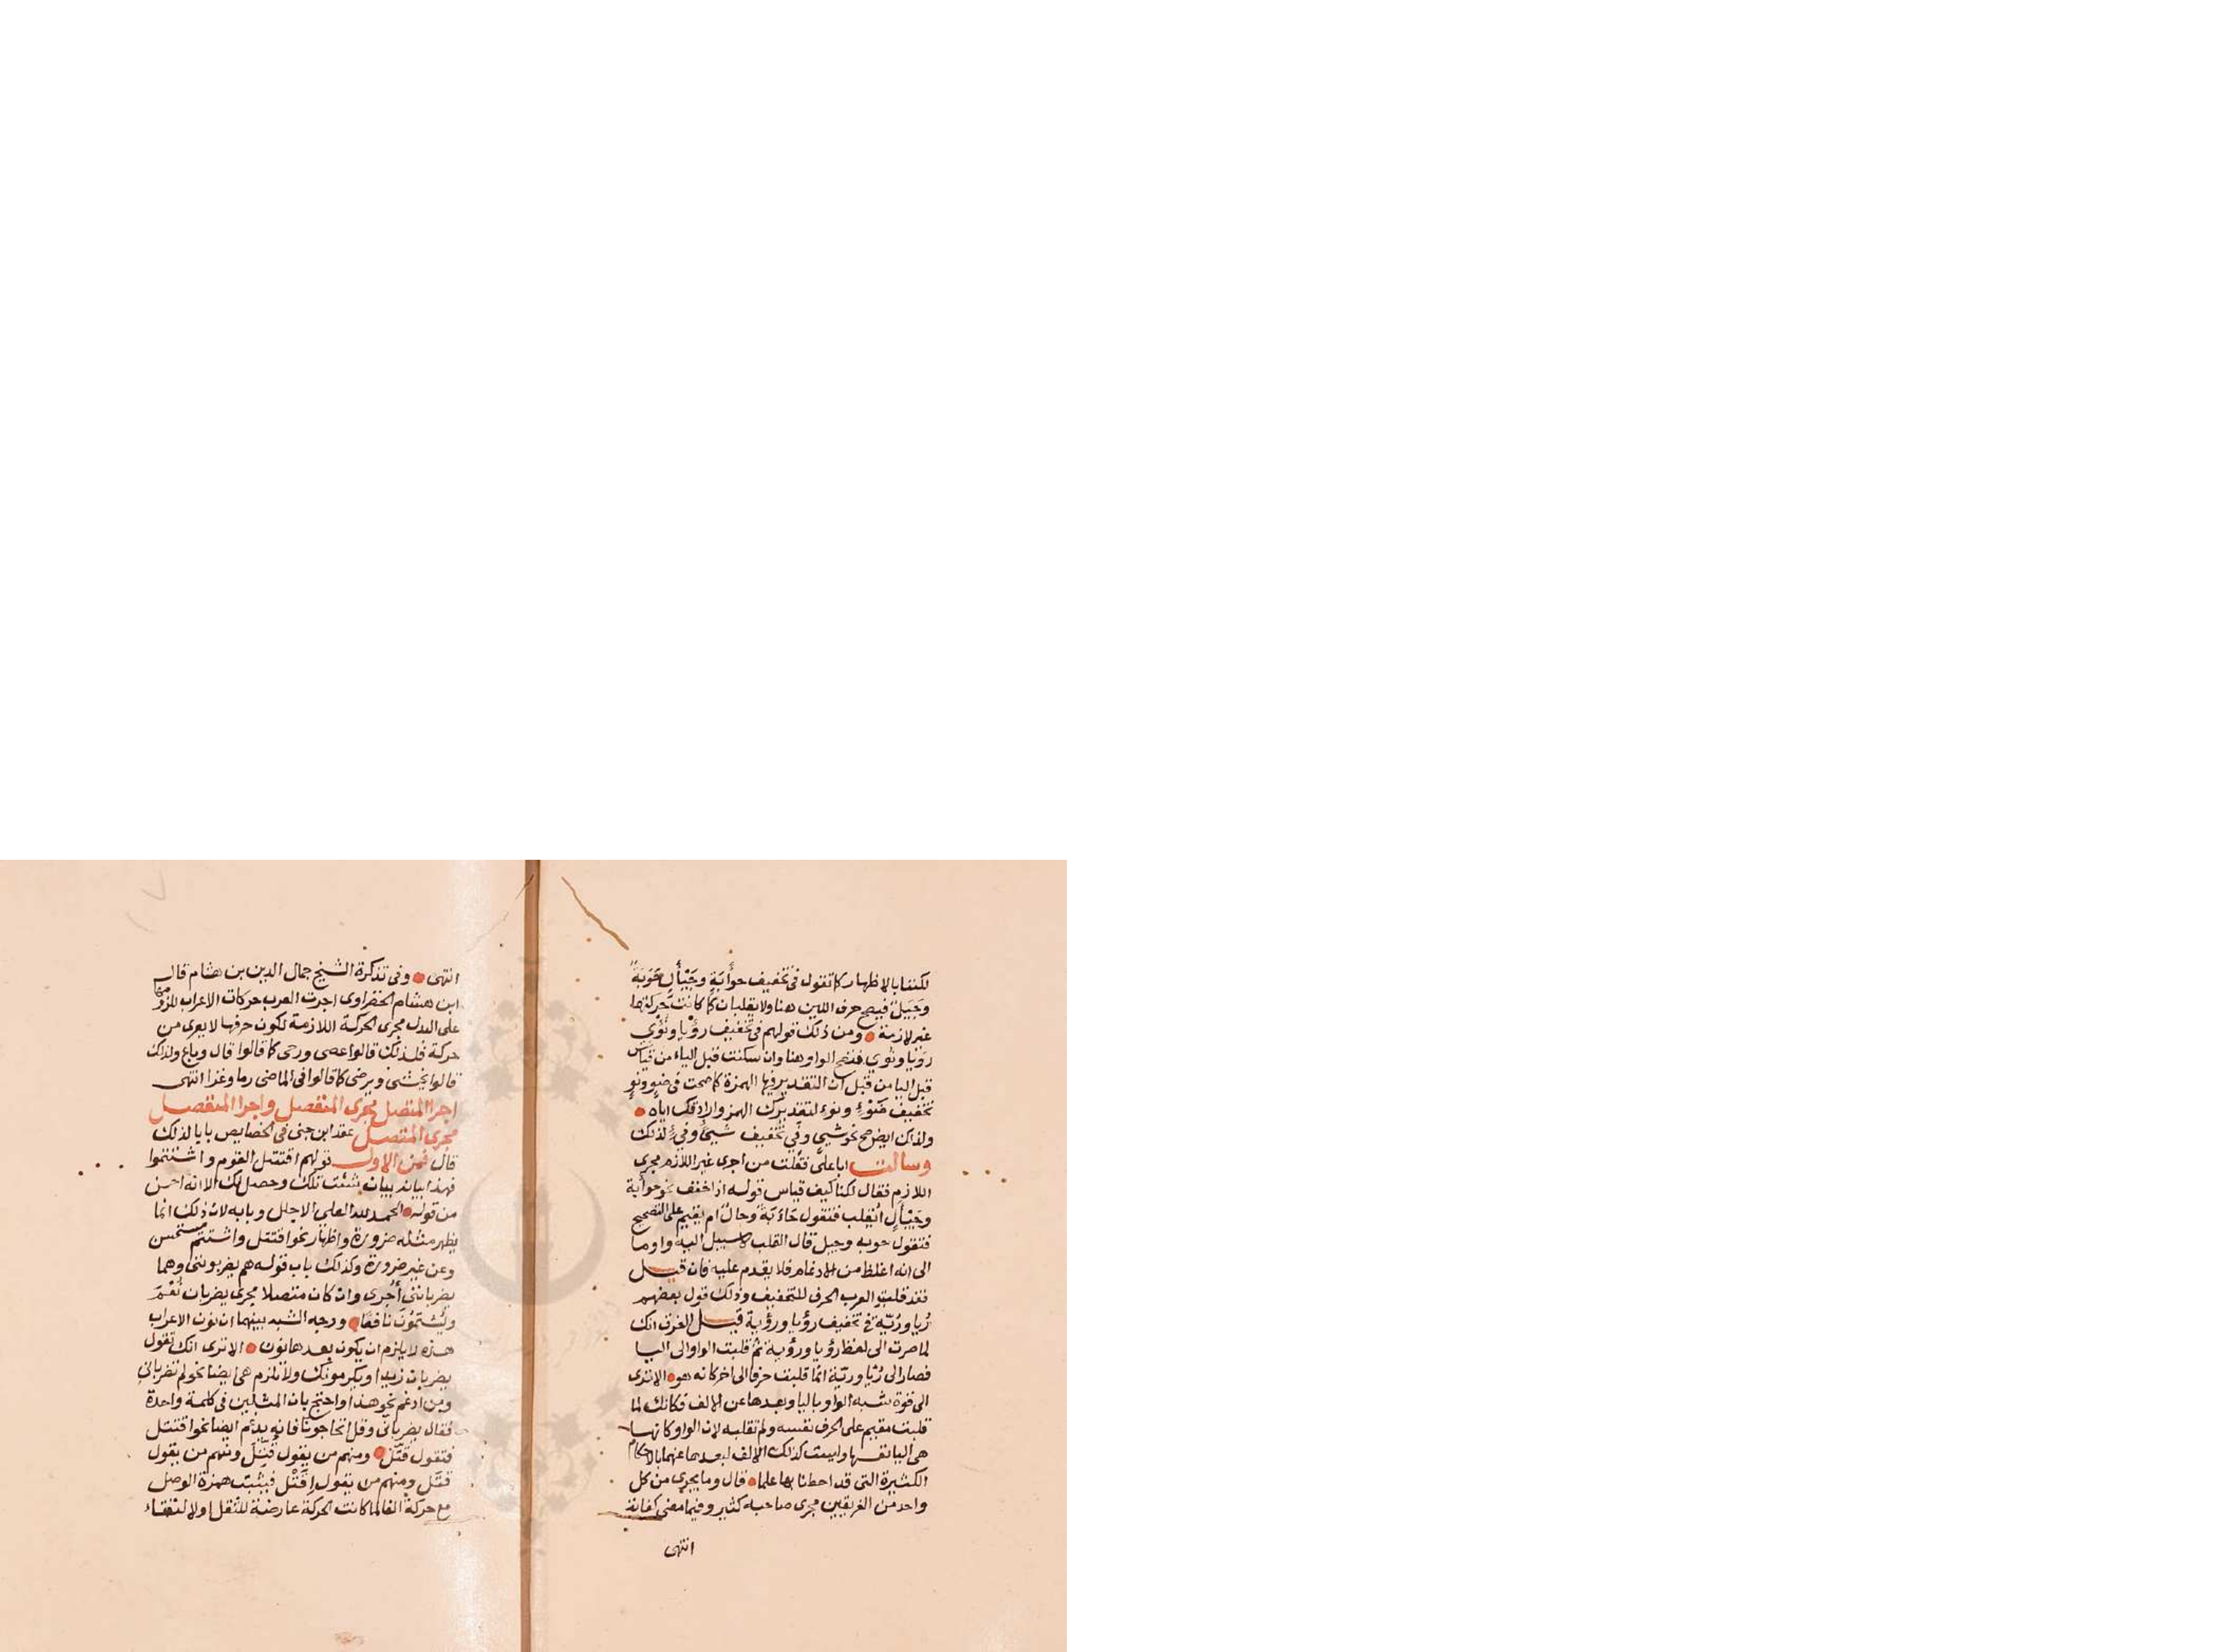 لكننا بالاظهار كما تقول في تخفيف حوأبة وجيأل حوبة
وجيل فيصح حرف اللين هنا ولا يقلبان لما كانت حركتها
غير لازمة ومن ذلك قولهم في تخفيف رؤيا ونؤي
رويا ونوي فتصح الواو هنا وان سكنت قبل الياء من قياس
قبل اليا من قبل ان التقدير فيها الهمزة كما صحت في ضو ونو
تخفيف ضوء ونوء لتقديرك الهمز وارادتك اياه
ولذلك ايضا صح نحو شي وفي في تخفيف شيء وفيء لذلك
وسالت ابا علي فقلت من اجرى غير اللازم مجرى
اللازم فقال لكنا كيف قياس قوله اذا خفف نحو حوأبة
وجيأل أيقلب فتقول حابة وحال ام يقيم على التصحيح
فتقول حوبه وجيل فقال القلب لا سبيل اليه واوما
الى انه اغلظ من الادغام فلا يقدم عليه فان قيل
فقد قلبت العرب الحرف للتخفيف وذلك قول بعضهم
ريا ورية في تخفيف رؤيا ورؤية قيل الفرق انك
لما صرت الى لفظ رويا وروية ثم قلبت الواو الى اليا
فصار الى ريا ورية انما قلبت حرفا الى اخر كانه هو الا ترى
الى قوة شبه الواو باليا وبعدها عن الالف فكانك لما
قلبت مقيم على الحرف نفسه ولم تقلبه لان الواو كانها
هي اليا نفسها وليست كذلك الالف لبعدها عنهما بالاحكام
الكثيرة التي قد احطنا بها علما قال وما يجري من كل
واحد من الفريقين مجرى صاحبه كثير وفيما مضى كفاية
انتهى
انتهى وفي تذكرة الشيخ جمال الدين بن هشام قال
ابن هشام الخضراوي اجرت العرب حركات الاعراب للزومها
على البدل مجرى الحركة اللازمة لكون حرفها لا يعرى من
حركة فلذلك قالوا عصى ورحى كما قالوا قال وباع ولذلك
قالوا يخشى ويرضى كما قالوا في الماضي رما وغزا انتهى
اجرا المتصل مجرى المنفصل واجرا المنفصل
مجرى المتصل عقد ابن جني في الخصايص بابا لذلك
قال فمن الاول قولهم اقتتل القوم واشتتموا
فهذا بيانه بيان شئت تلك وحصل لك الا انه احسن
من قوله الحمد لله العلي الاجلل وبابه لان ذلك انما
يظهر مثله ضرورة واظهار نحو اقتتل واشتتم مستحسن
وعن غير ضرورة وكذلك باب قوله هم يضربونني وهما
يضربانني أجري وان كان متصلا مجرى يضربان نُعْمَ
ويشتمون نافعا ووجه الشبه بينهما ان نون الاعراب
هذه لا يلزم ان يكون بعدها نون الا ترى انك تقول
يضربان زيدا ويكرمونك ولا تلزم هي ايضا نحو لم تضرباني
ومن ادغم نحو هذا واحتج بان المثلين في كلمة واحدة
فقال يضرباني وقل اتحاجونا فانه يدغم ايضا نحو اقتتل
فتقول قتل ومنهم من يقول قِتِّل ومنهم من يقول
قتل ومنهم من يقول اقتل فيثبت همزة الوصل
مع حركة الفا لما كانت الحركة عارضة للنقل او لالتقاء